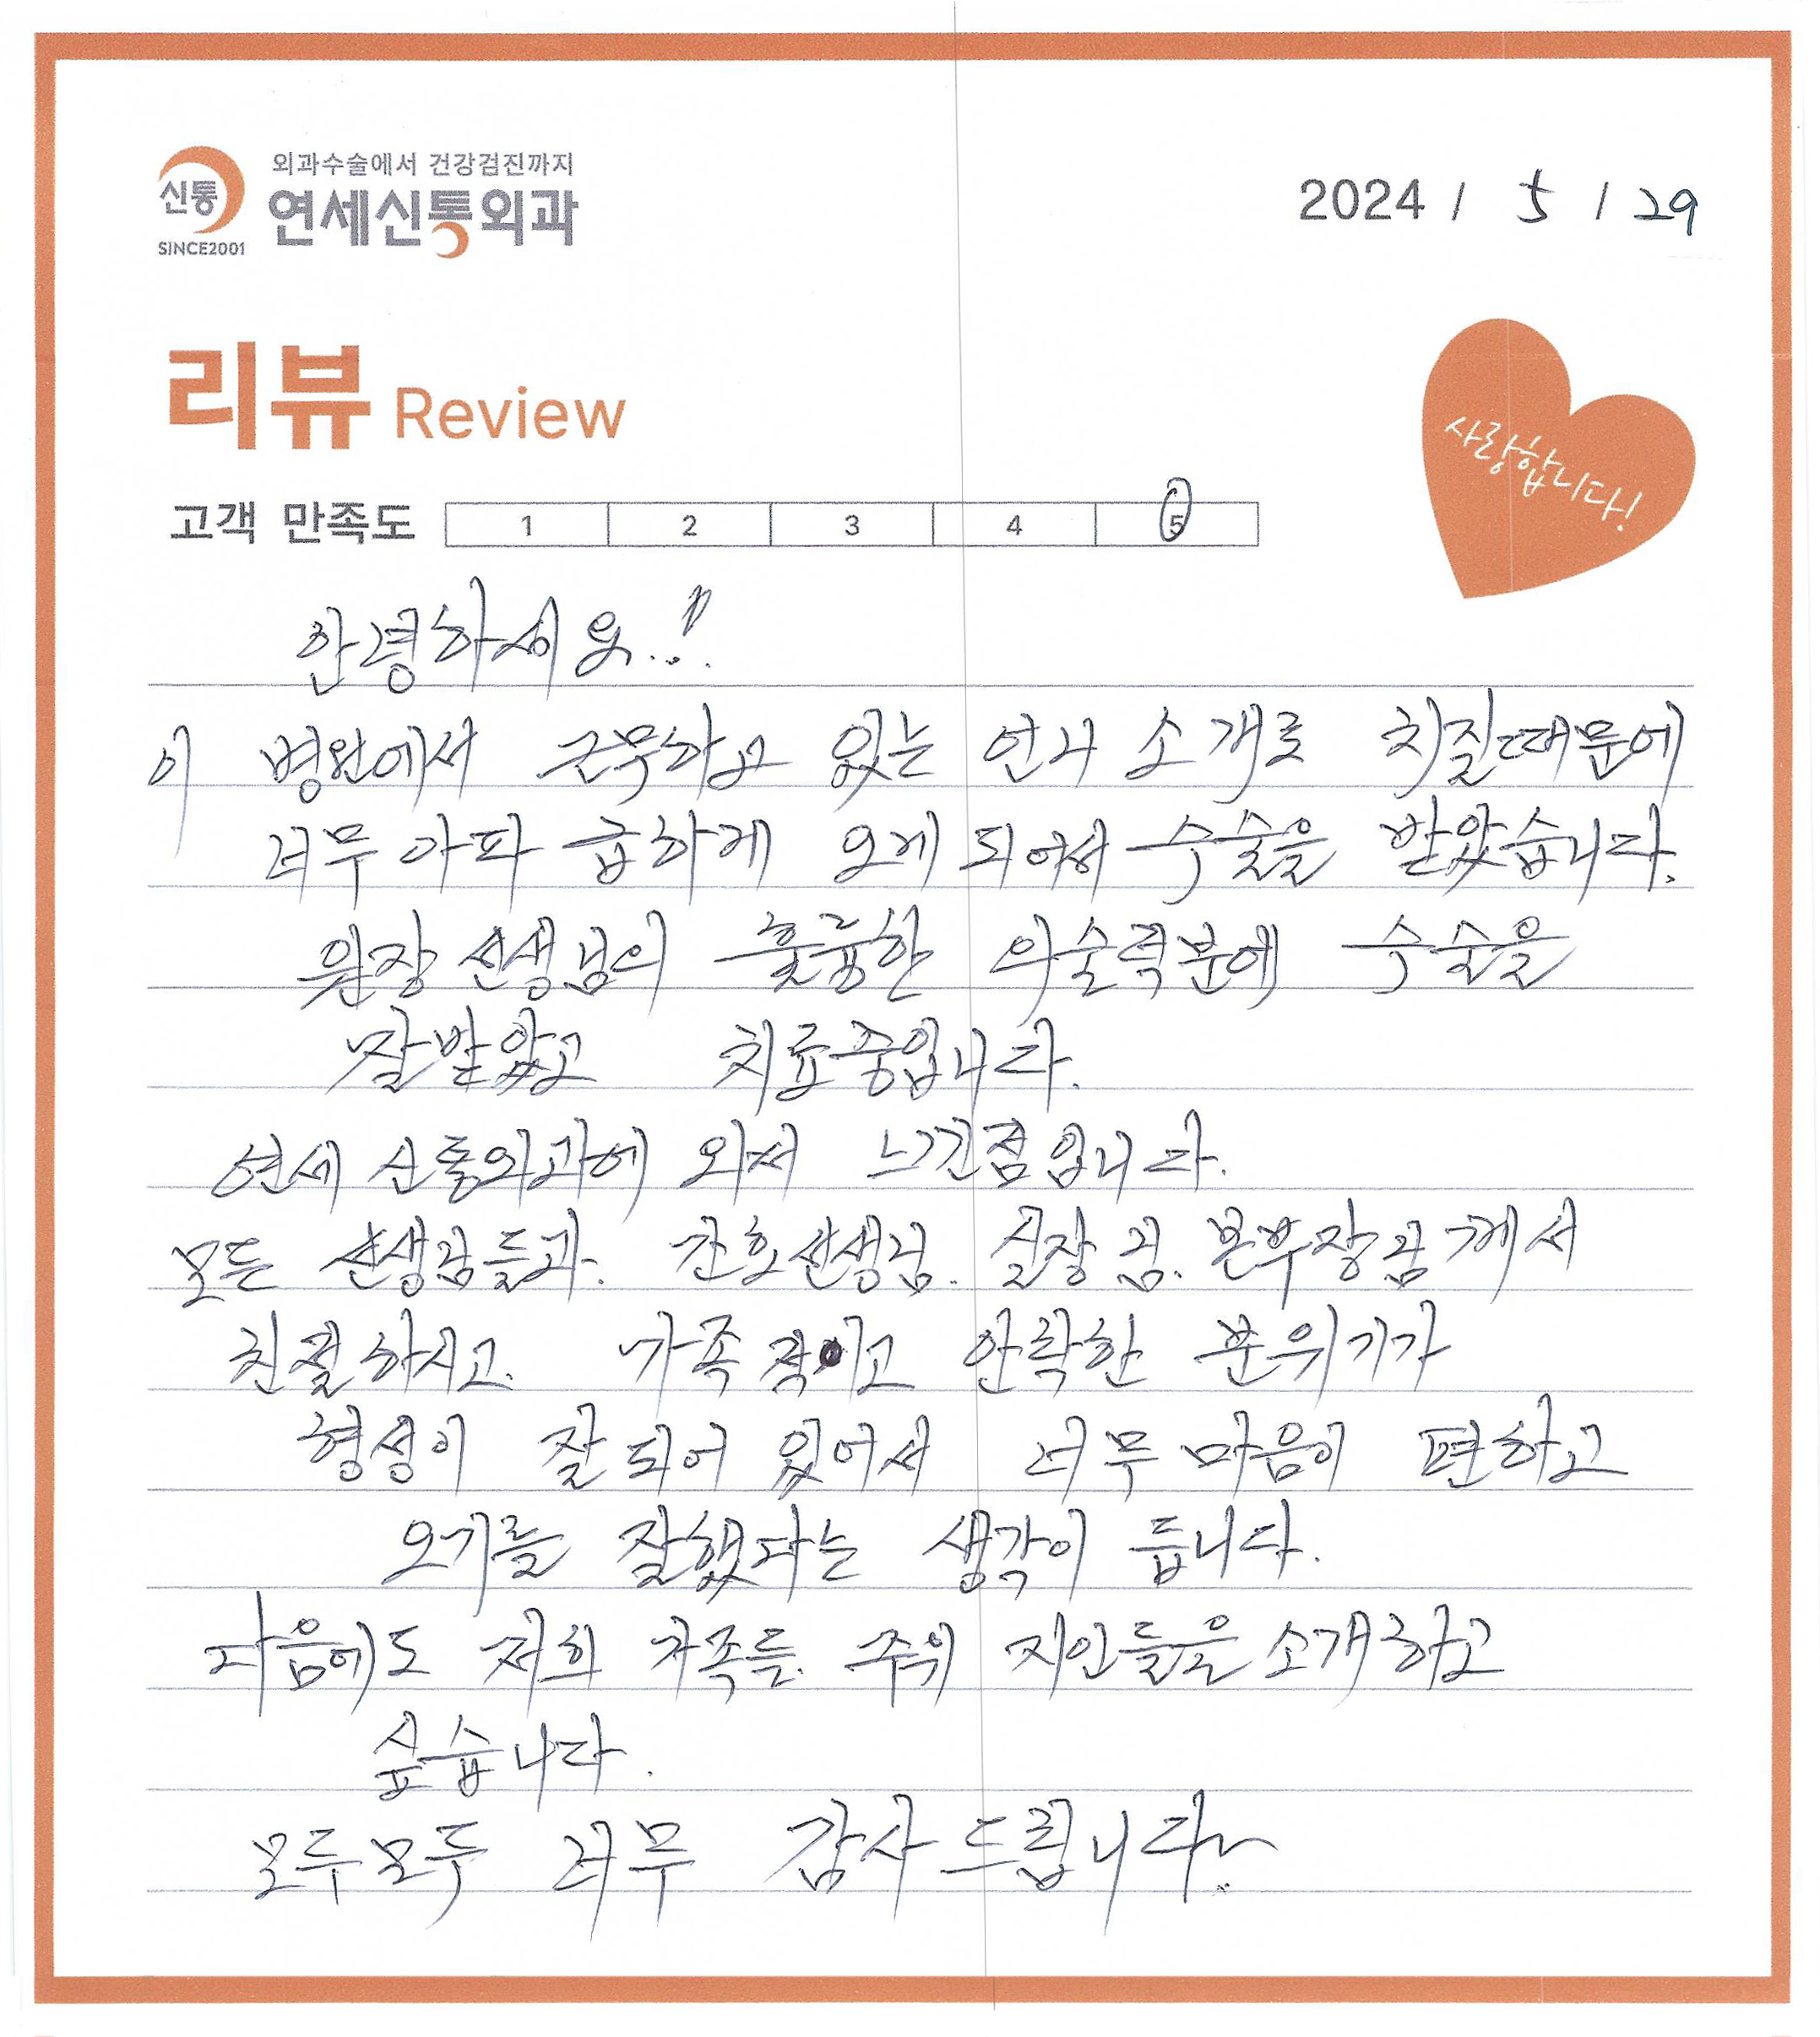 외과수술에서 건강검진까지
신통
연세신통외과
SINCE2001
2024 / 5 / 29
리뷰 Review
사랑합니다!
고객 만족도 1 2 3 4 5
안녕하세요..!!
이 병원에서 근무하고 있는 언니 소개로 치질때문에
너무 아파 급하게 오게 되어서 수술을 받았습니다.
원장 선생님의 훌륭한 의술력분에 수술을
잘받았고 치료중입니다.
연세 신통외과에 와서 느낀점입니다.
모든 선생님들과. 간호선생님. 실장님. 본부장님께서
친절하시고. 가족적이고 안락한 분위기가
형성이 잘 되어 있어서 너무 마음이 편하고
오기를 잘했다는 생각이 듭니다.
다음에도 저희 가족들. 주위 지인들을 소개하고
싶습니다.
모두모두 너무 감사드립니다~